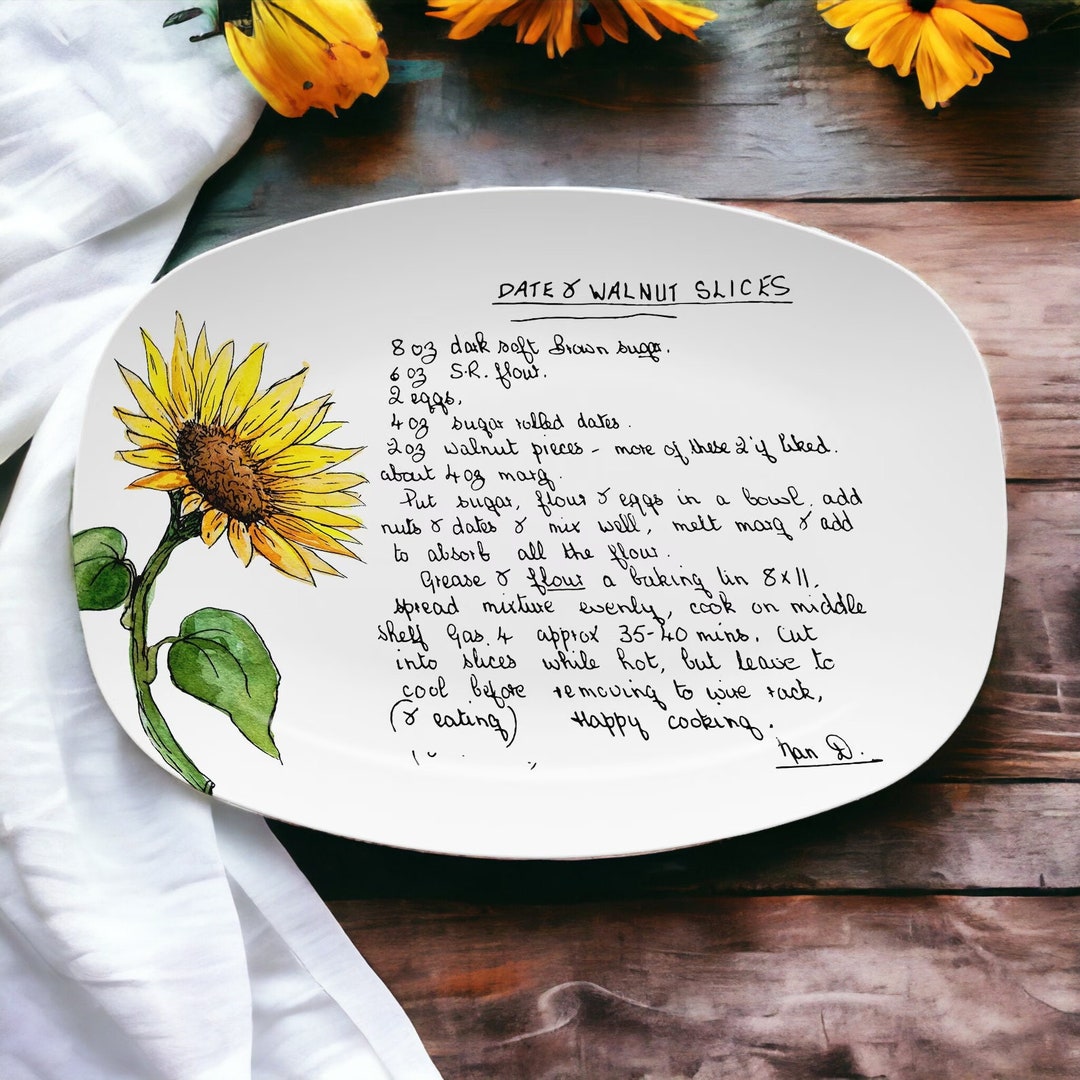 DATE & WALNUT SLICES
8 oz dark soft Brown sugar.
6 oz S.R. flour.
2 eggs.
4 oz sugar rolled dates.
2 oz walnut pieces - more of these 2 if liked.
about 4 oz marg.
Put sugar, flour & eggs in a bowl, add
nuts & dates & mix well, melt marg & add
to absorb all the flour.
Grease & flour a baking tin 8x11.
spread mixture evenly, cook on middle
shelf Gas. 4 approx 35-40 mins. Cut
into slices while hot, but leave to
cool before removing to wire rack,
(& eating) Happy cooking.
Nan D.